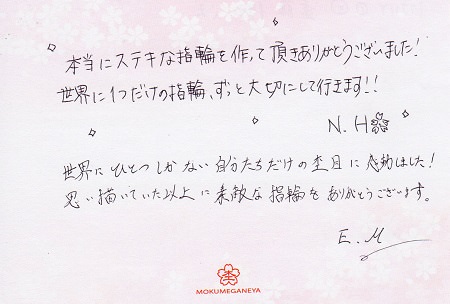 本当にステキな指輪を作って頂きありがとうございました!
世界に1つだけの指輪、ずっと大切にして行きます!!
N.H
世界にひとつしかない自分たちだけの杢目に感動しました!
思い描いていた以上に素敵な指輪をありがとうございます。
E.M
MOKUMEGANEYA